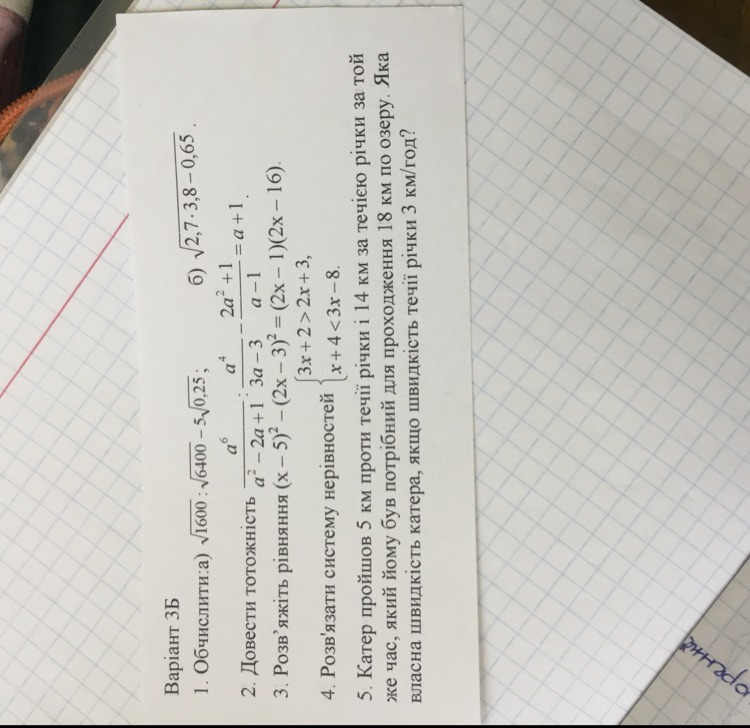 Варіант 3Б
1. Обчислити:а) √1600 : √6400 − 5√0,25 ; б) √(2,7·3,8 − 0,65) .
2. Довести тотожність a⁶/(a² − 2a + 1) : a⁴/(3a − 3) − (2a² + 1)/(a − 1) = a + 1 .
3. Розв’яжіть рівняння (x − 5)² − (2x − 3)² = (2x − 1)(2x − 16).
4. Розв'язати систему нерівностей {3x + 2 > 2x + 3,
x + 4 < 3x − 8.
5. Катер пройшов 5 км проти течії річки і 14 км за течією річки за той
же час, який йому був потрібний для проходження 18 км по озеру. Яка
власна швидкість катера, якщо швидкість течії річки 3 км/год?